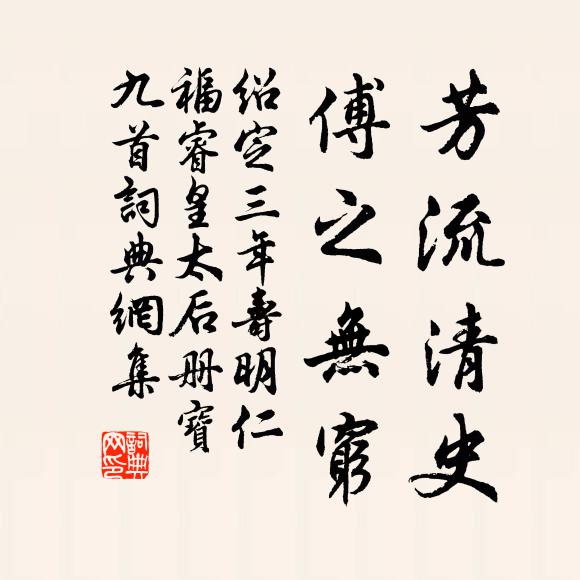 芳流清史
傅之無窮
绍定三年壽明仁
福睿皇太后册寶
九首詞典網集
詞典网印